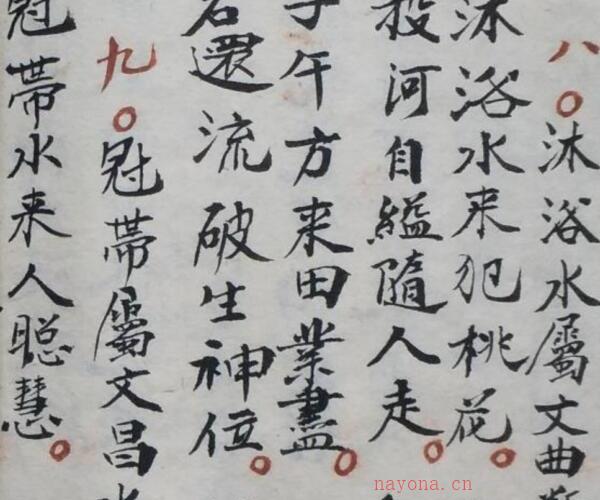 八〇沐浴水屬文曲
沐浴水来犯桃花。
投河自縊隨人走。
子午方来田業盡。
若還流破生神位。
九〇冠带屬文昌水
冠带水来人聪慧。
nayona.cn